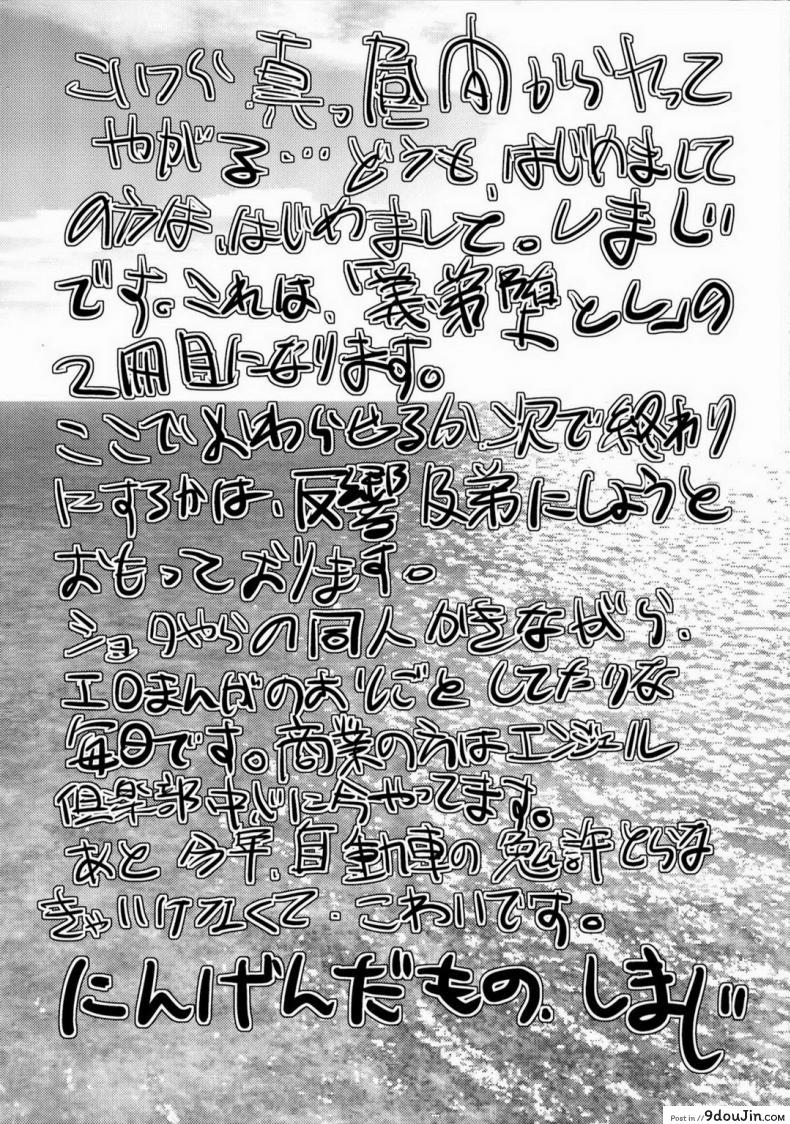 こいつら真っ昼間からヤって
やがる…どうも、はじめまして
の方は、はじめまして。しまじ
です。これは、「義弟堕とし」の
2冊目になります。
ここでおわらせるか、次で終わり
にするかは、反響及弟にしようと
おもっております。
ショタやらの同人かきながら、
エロまんがのおしごとしてたりな
毎日です。商業の方はエンジェル
倶楽部中心に今やってます。
あと今年、自動車の免許とらな
きゃいけなくて・こわいです。
にんげんだもの、しまじ
Post in // 9douJin.com